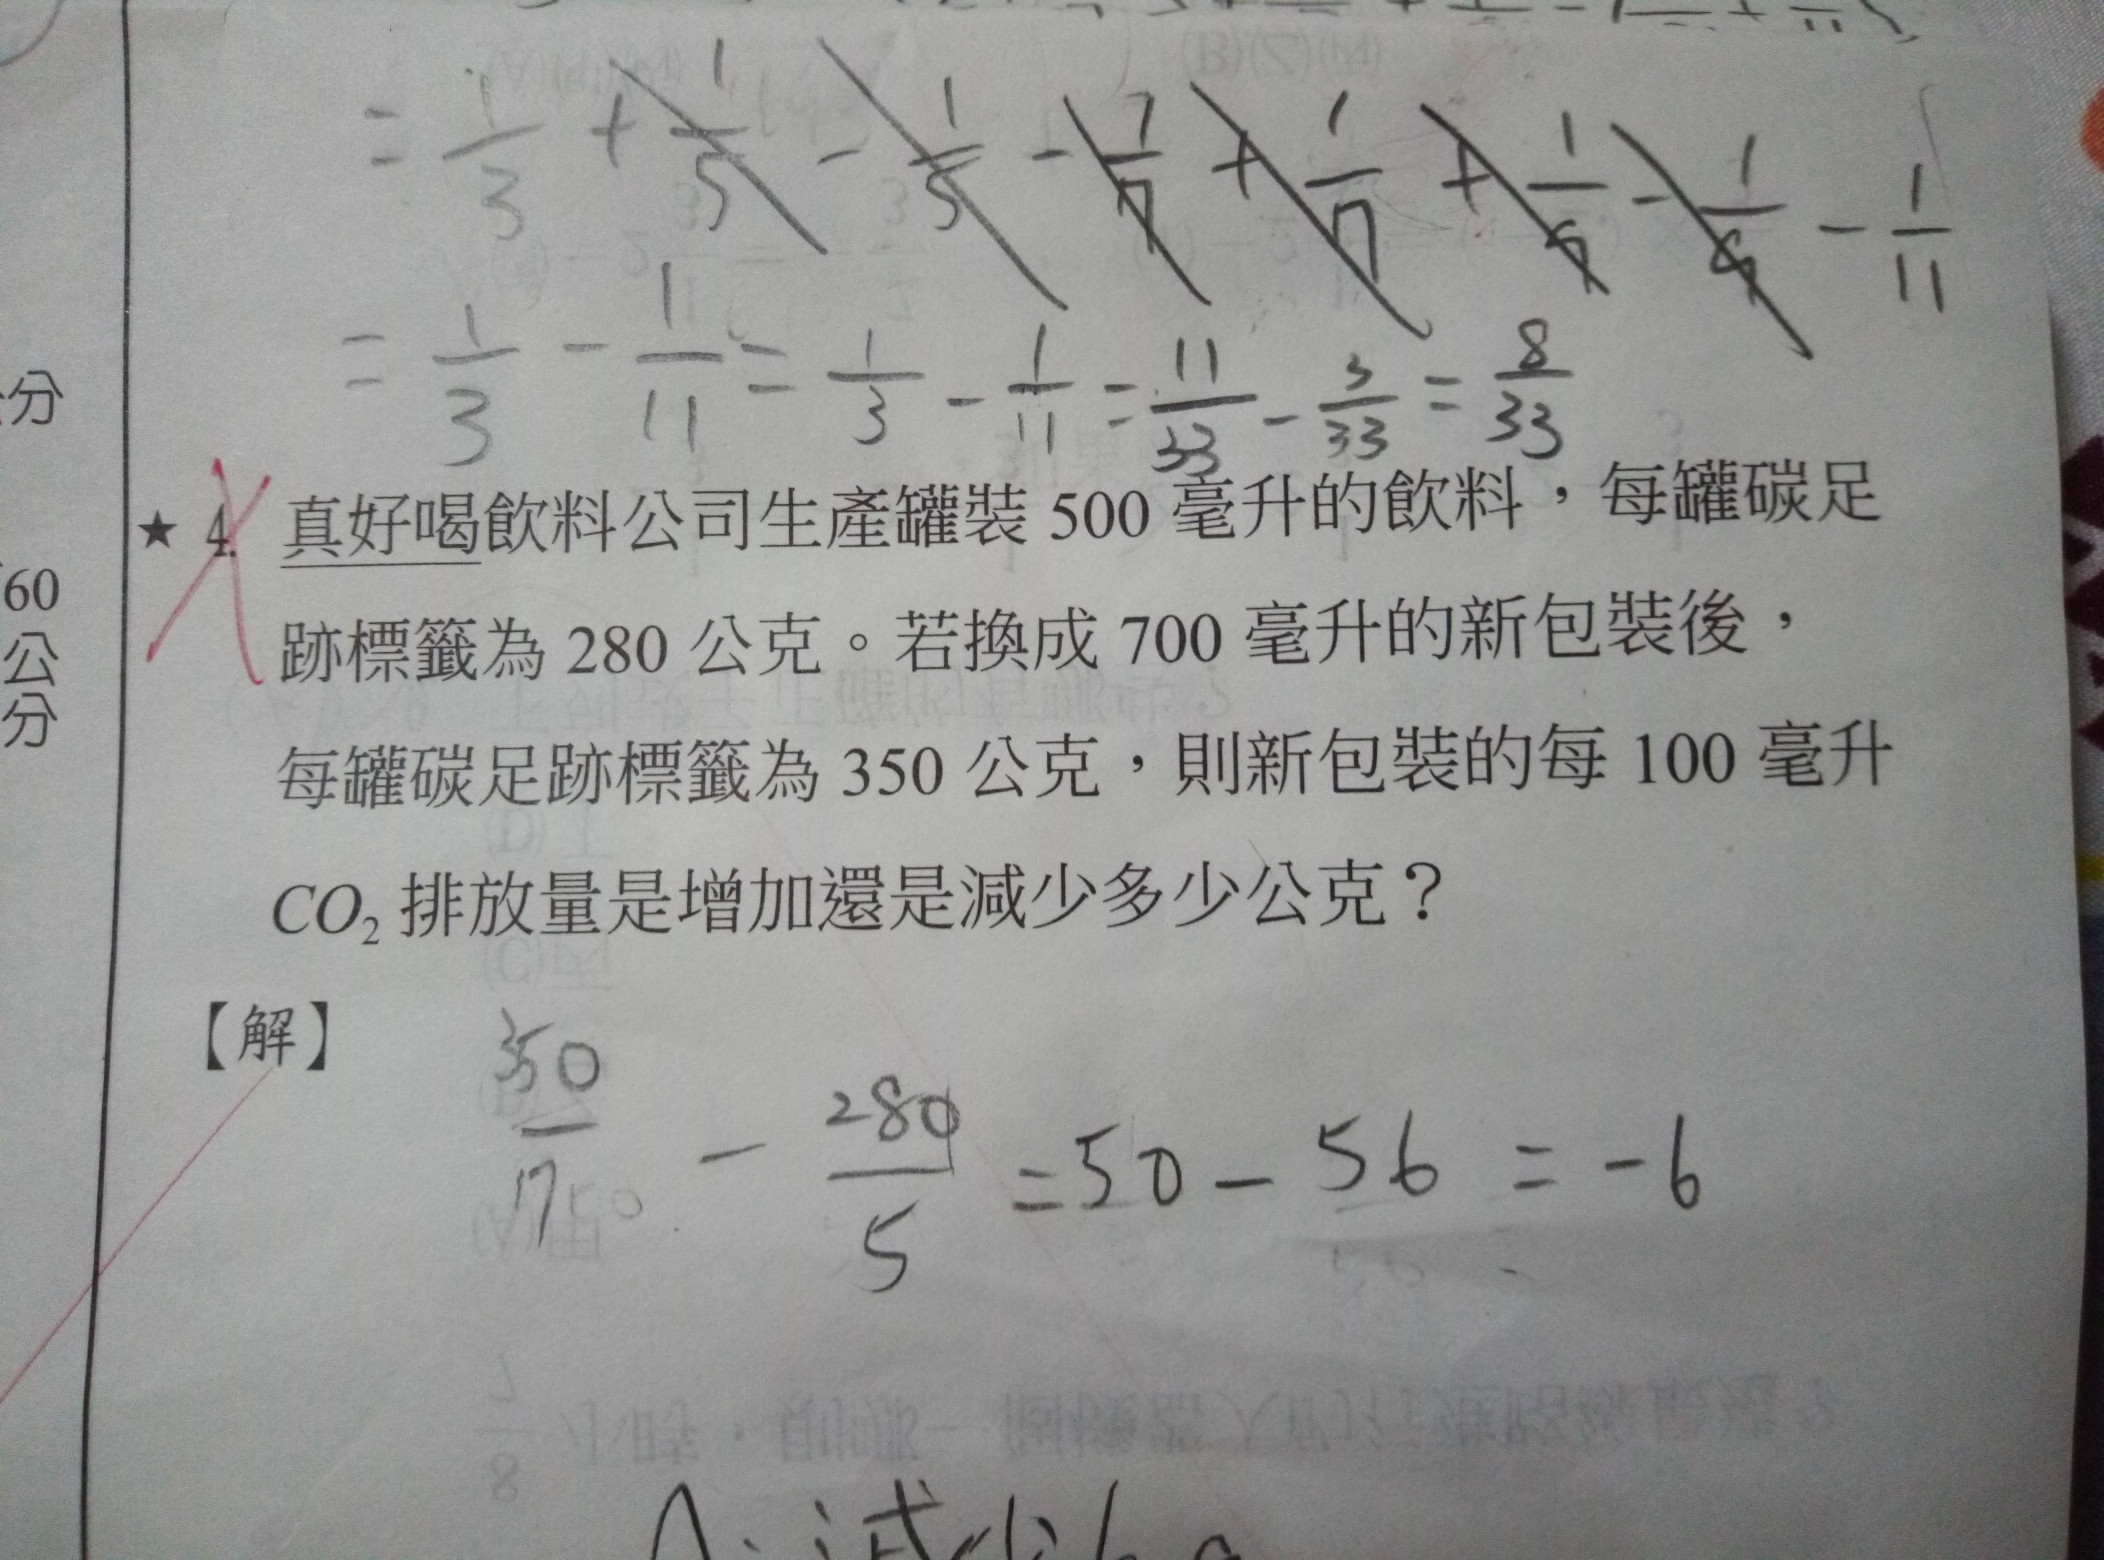 = 1/3 + 1/5 - 1/5 - 1/7 + 1/7 + 1/9 - 1/9 - 1/11
= 1/3 - 1/11 = 1/3 - 1/11 = 11/33 - 3/33 = 8/33
分
60
公
分
★ 4. 真好喝飲料公司生產罐裝 500 毫升的飲料，每罐碳足
跡標籤為 280 公克。若換成 700 毫升的新包裝後，
每罐碳足跡標籤為 350 公克，則新包裝的每 100 毫升
CO₂ 排放量是增加還是減少多少公克？
【解】
350/7 - 280/5 = 50 - 56 = -6